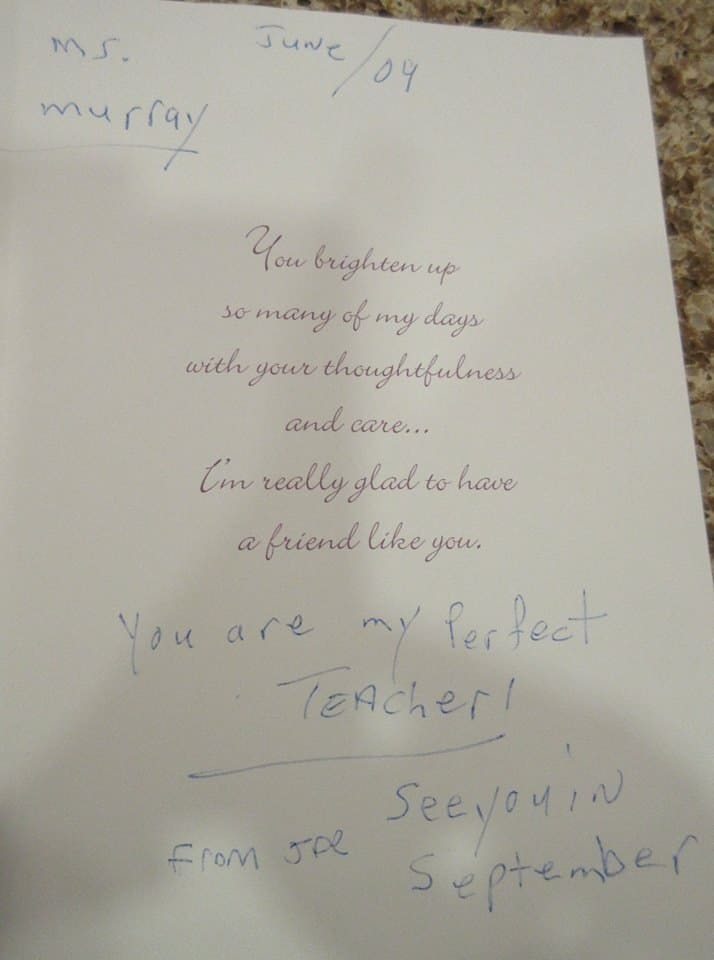 Ms. June/09
Murray
You brighten up
so many of my days
with your thoughtfulness
and care...
I'm really glad to have
a friend like you.
You are my Perfect
TEAcher!
See you iN
From JOE
September